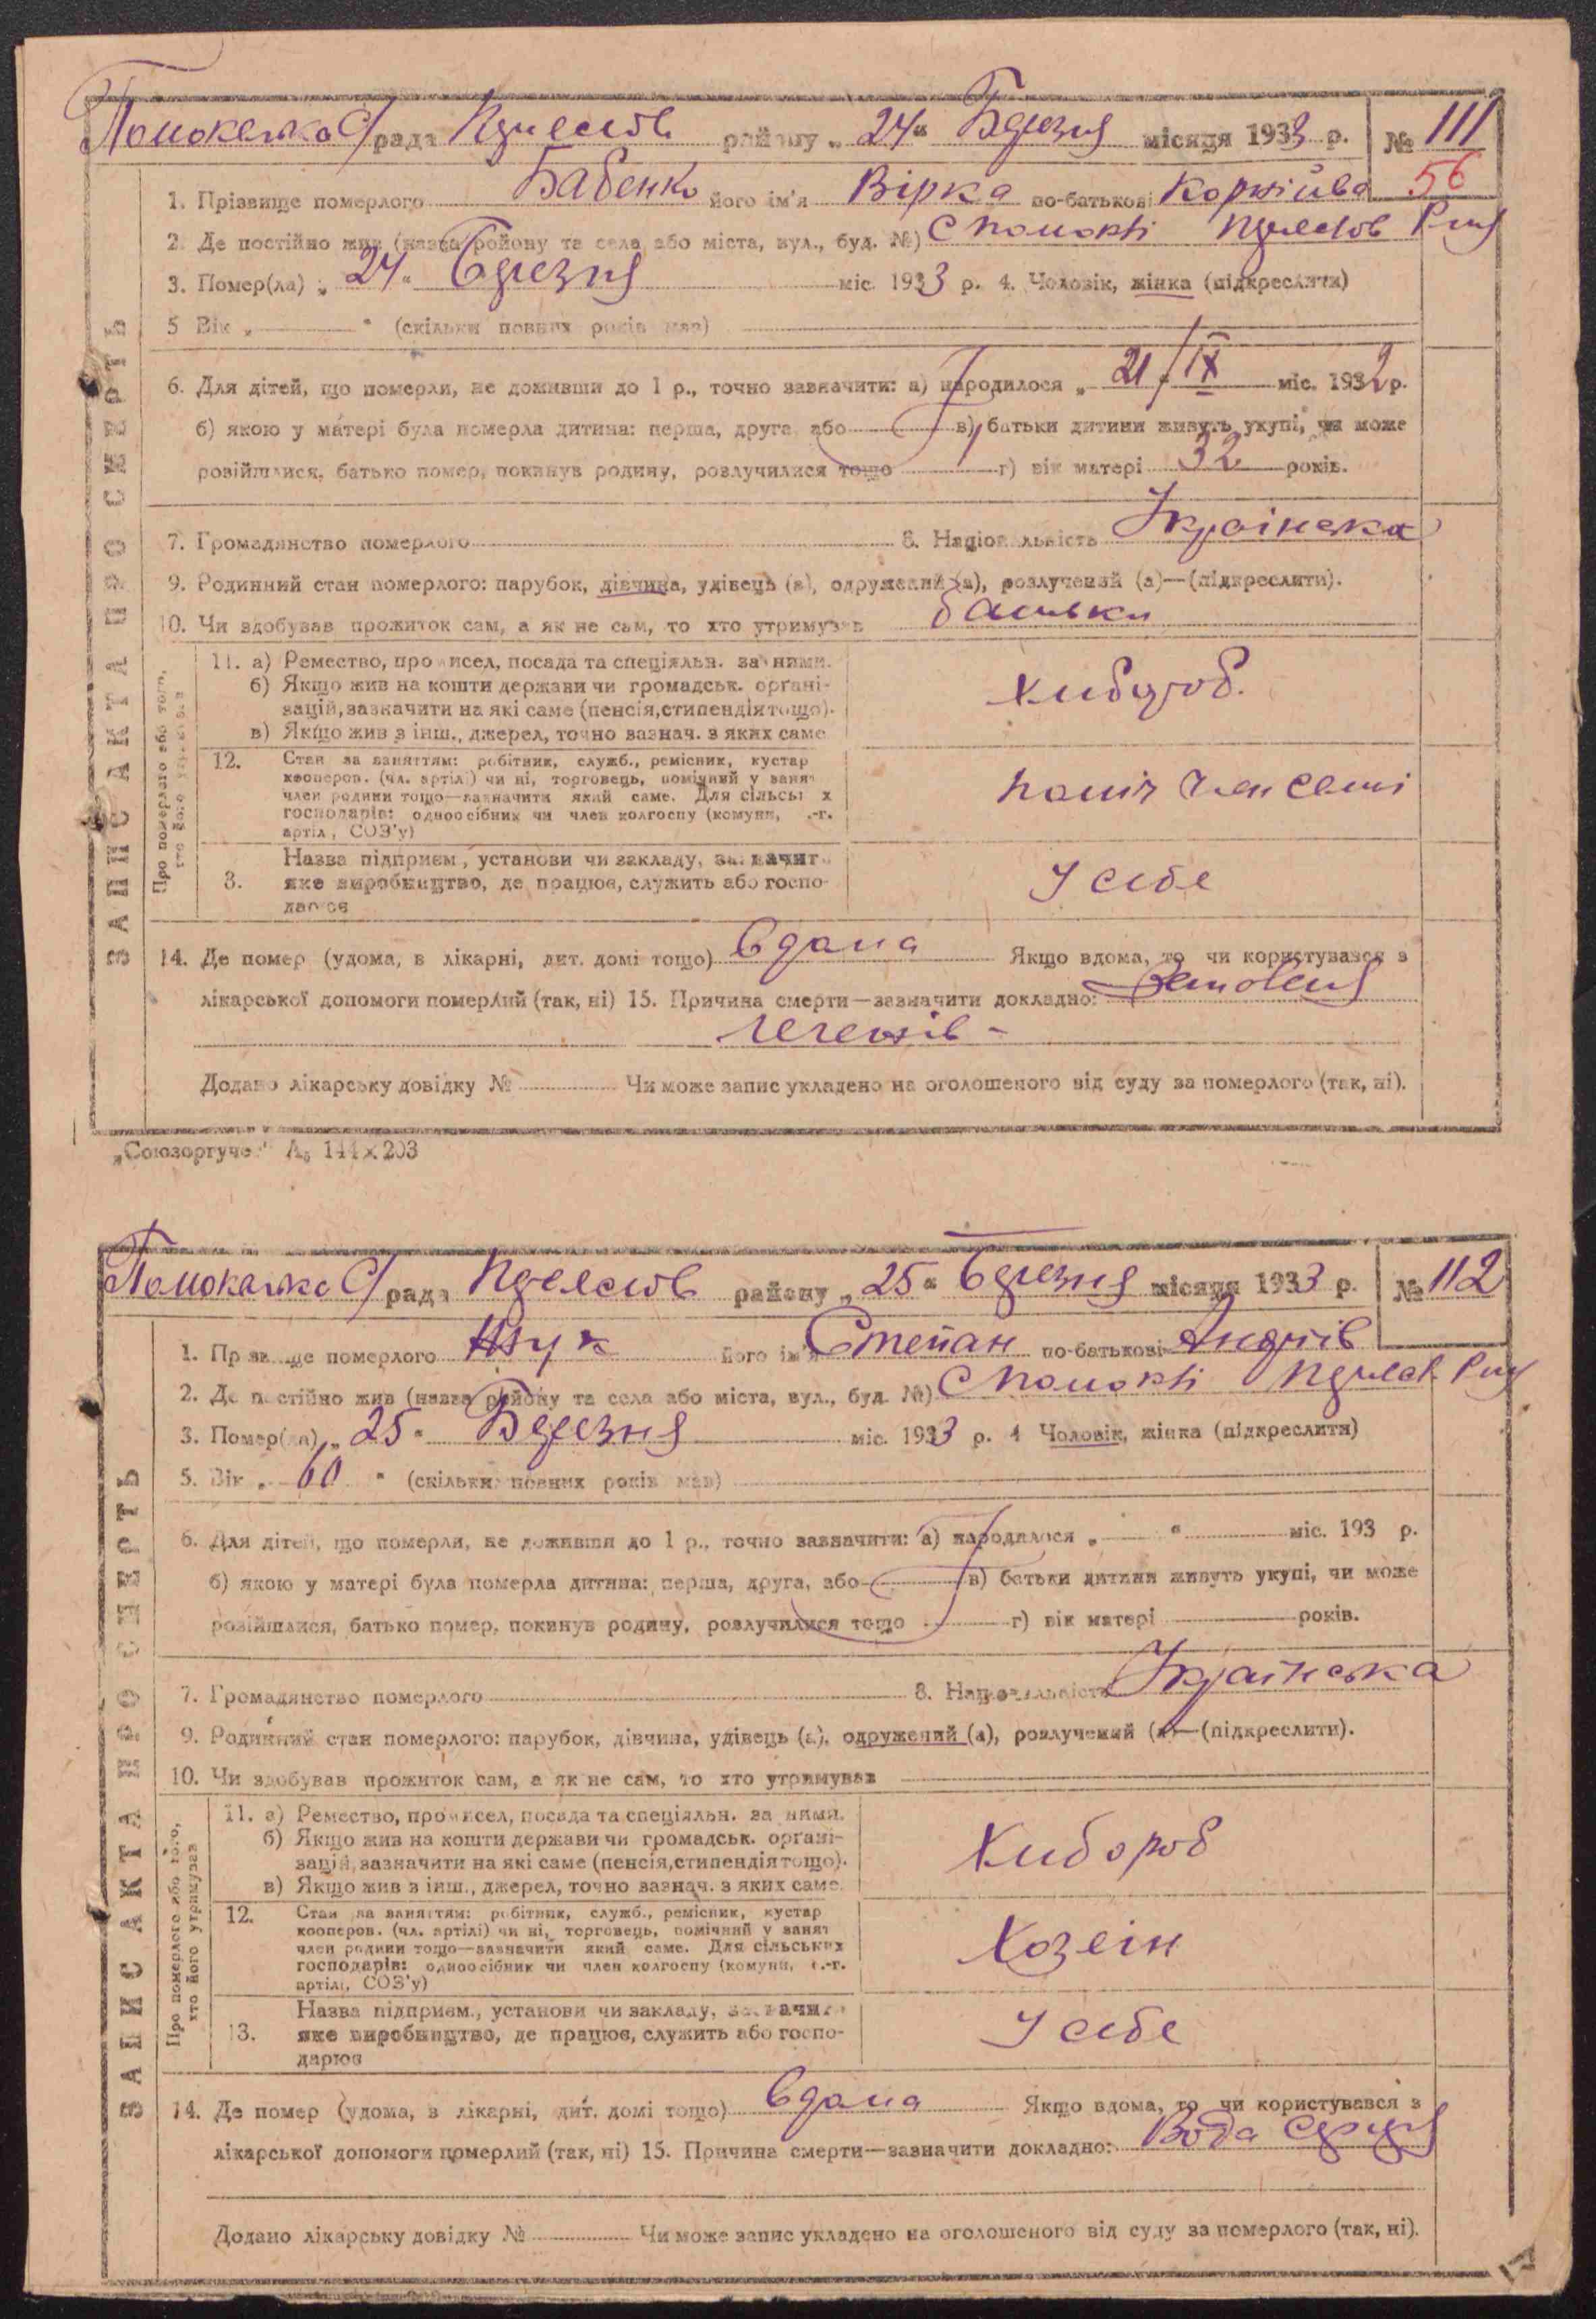 ЗАПИС АКТА ПРО СМЕРТЬ
рада району „ 24 “ Березня місяця 1933 р. № 111
56
1. Прізвище померлого Бабенко його ім'я Вірка по-батькові Корніївна
2. Де постійно жив (назва району та села або міста, вул., буд. №) с
3. Помер(ла) „ 24 “ Березня міс. 1933 р. 4. Чоловік, жінка (підкреслити)
5 Вік „ “ (скільки повних років мав)
6. Для дітей, що померли, не доживши до 1 р., точно зазначити: а) народилося „ 21 “ IX міс. 1932 р.
б) якою у матері була померла дитина: перша, друга, або в) батьки дитини живуть укупі, чи може
розійшлися, батько помер, покинув родину, розлучилися тощо г) вік матері 32 років.
7. Громадянство померлого 8. Національність Українська
9. Родинний стан померлого: парубок, дівчина, удівець (а), одружений (а), розлучений (а)—(підкреслити).
10. Чи здобував прожиток сам, а як не сам, то хто утримував батьки
Про померлого або того, хто його утримував
11. а) Ремество, промисел, посада та спеціяльн. за ними.
б) Якщо жив на кошти держави чи громадськ. органі-
зацій, зазначити на які саме (пенсія, стипендія тощо).
в) Якщо жив з інш., джерел, точно зазнач. з яких саме
Хлібороб.
12. Стан за заняттям: робітник, служб., ремісник, кустар
кооперов. (чл. артілі) чи ні, торговець, помічний у занят
член родини тощо—зазначити який саме. Для сільських
господарів: одноосібник чи член колгоспу (комуни, с.-г.
артілі, СОЗ'у)
поміч член семї
13. Назва підприєм., установи чи закладу, зазначити
яке виробництво, де працює, служить або госпо-
дарює
У себе
14. Де помер (удома, в лікарні, дит. домі тощо) вдома Якщо вдома, то чи користувався з
лікарської допомоги померлий (так, ні) 15. Причина смерти—зазначити докладно:
Додано лікарську довідку № Чи може запис укладено на оголошеного від суду за померлого (так, ні).
„Союзоргучет“ А₅ 144×203
ЗАПИС АКТА ПРО СМЕРТЬ
рада району „ 25 “ Березня місяця 1933 р. № 112
1. Прізвище померлого його ім'я Степан по-батькові Андрiїв
2. Де постійно жив (назва району та села або міста, вул., буд. №) с
3. Помер(ла) „ 25 “ Березня міс. 1933 р. 4 Чоловік, жінка (підкреслити)
5. Вік „ 60 “ (скільки повних років мав)
6. Для дітей, що померли, не доживши до 1 р., точно зазначити: а) народилося „ “ міс. 193 р.
б) якою у матері була померла дитина: перша, друга, або в) батьки дитини живуть укупі, чи може
розійшлися, батько помер, покинув родину, розлучилися тощо г) вік матері років.
7. Громадянство померлого 8. Національність Українська
9. Родинний стан померлого: парубок, дівчина, удівець (а), одружений (а), розлучений (а)—(підкреслити).
10. Чи здобував прожиток сам, а як не сам, то хто утримував
Про померлого або того, хто його утримував
11. а) Ремество, промисел, посада та спеціяльн. за ними.
б) Якщо жив на кошти держави чи громадськ. органі-
зацій, зазначити на які саме (пенсія, стипендія тощо).
в) Якщо жив з інш., джерел, точно зазнач. з яких саме.
Хлібороб
12. Стан за заняттям: робітник, служб., ремісник, кустар
кооперов. (чл. артілі) чи ні, торговець, помічний у занят
член родини тощо—зазначити який саме. Для сільських
господарів: одноосібник чи член колгоспу (комуни, с.-г.
артілі, СОЗ'у)
Хозеїн
13. Назва підприєм., установи чи закладу, зазначити
яке виробництво, де працює, служить або госпо-
дарює
У себе
14. Де помер (удома, в лікарні, дит. домі тощо) вдома Якщо вдома, то чи користувався з
лікарської допомоги померлий (так, ні) 15. Причина смерти—зазначити докладно: Вода серця
Додано лікарську довідку № Чи може запис укладено на оголошеного від суду за померлого (так, ні).